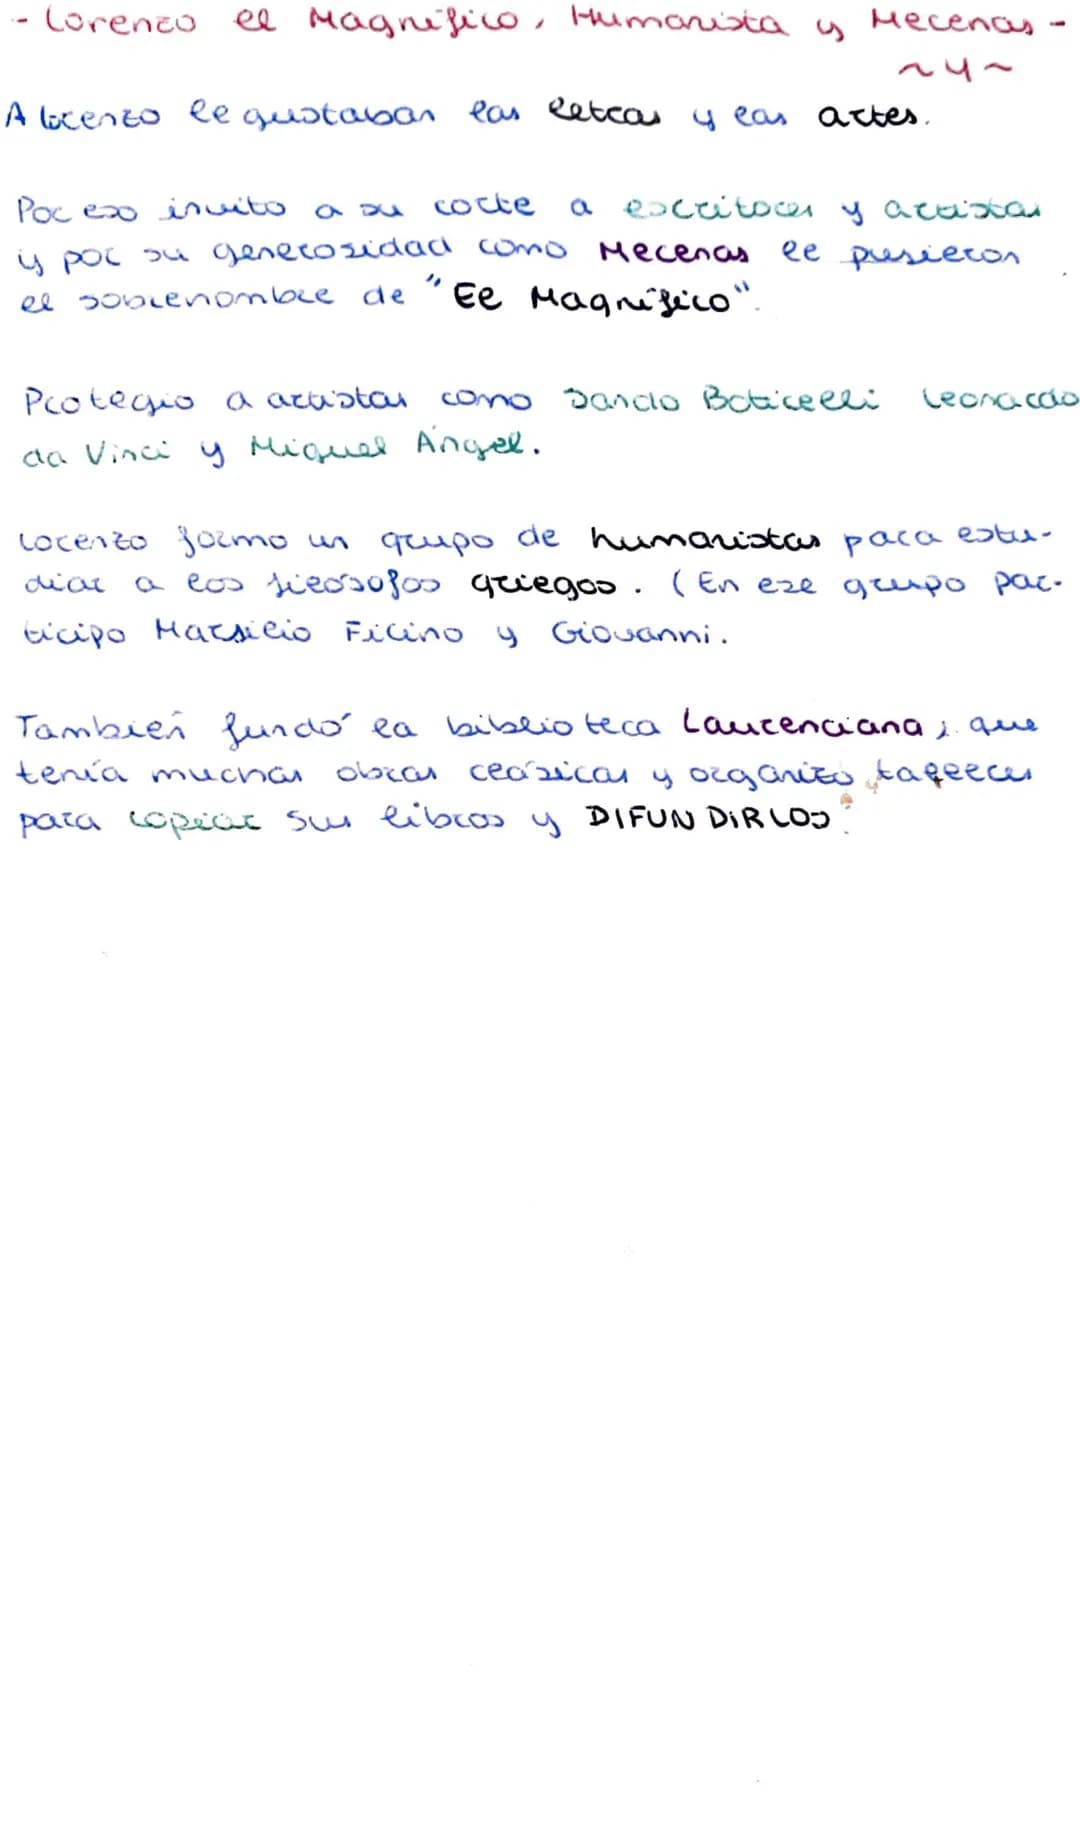 - Lorenzo el Magnífico, Humanista y Mecenas -
~4~
A Lorenzo le gustaban las letras y las artes.
Por eso invito a su corte a escritores y artistas
y por su generosidad como Mecenas le pusieron
el sobrenombre de "El Magnífico".
Protegio a artistas como Sandro Boticelli Leonardo
da Vinci y Miguel Ángel.
Lorenzo formo un grupo de humanistas para estu-
diar a los filósofos griegos. (En ese grupo par-
ticipo Marsilio Ficino y Giovanni.
También fundó la biblioteca Laurenciana, que
tenía muchas obras clásicas y organizo talleres
para copiar sus libros y DIFUNDIRLOS.